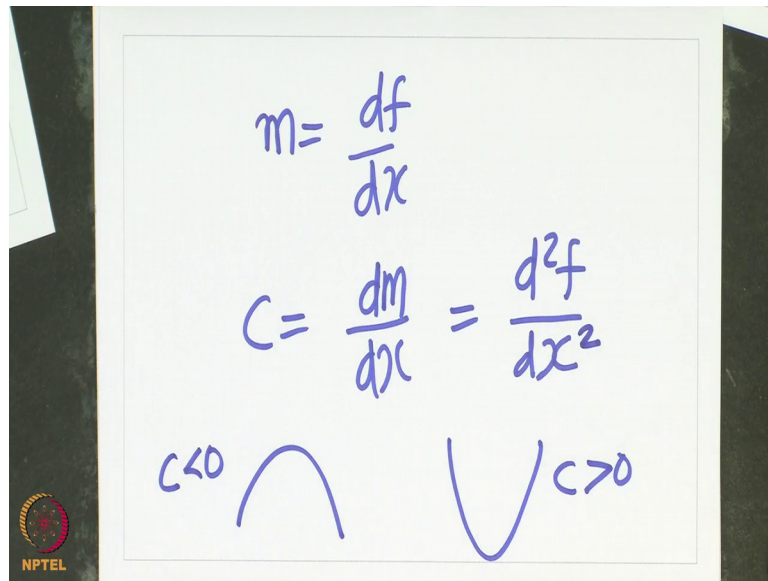 m = df/dx
C = dm/dx = d²f/dx²
C<0 C>0
NPTEL